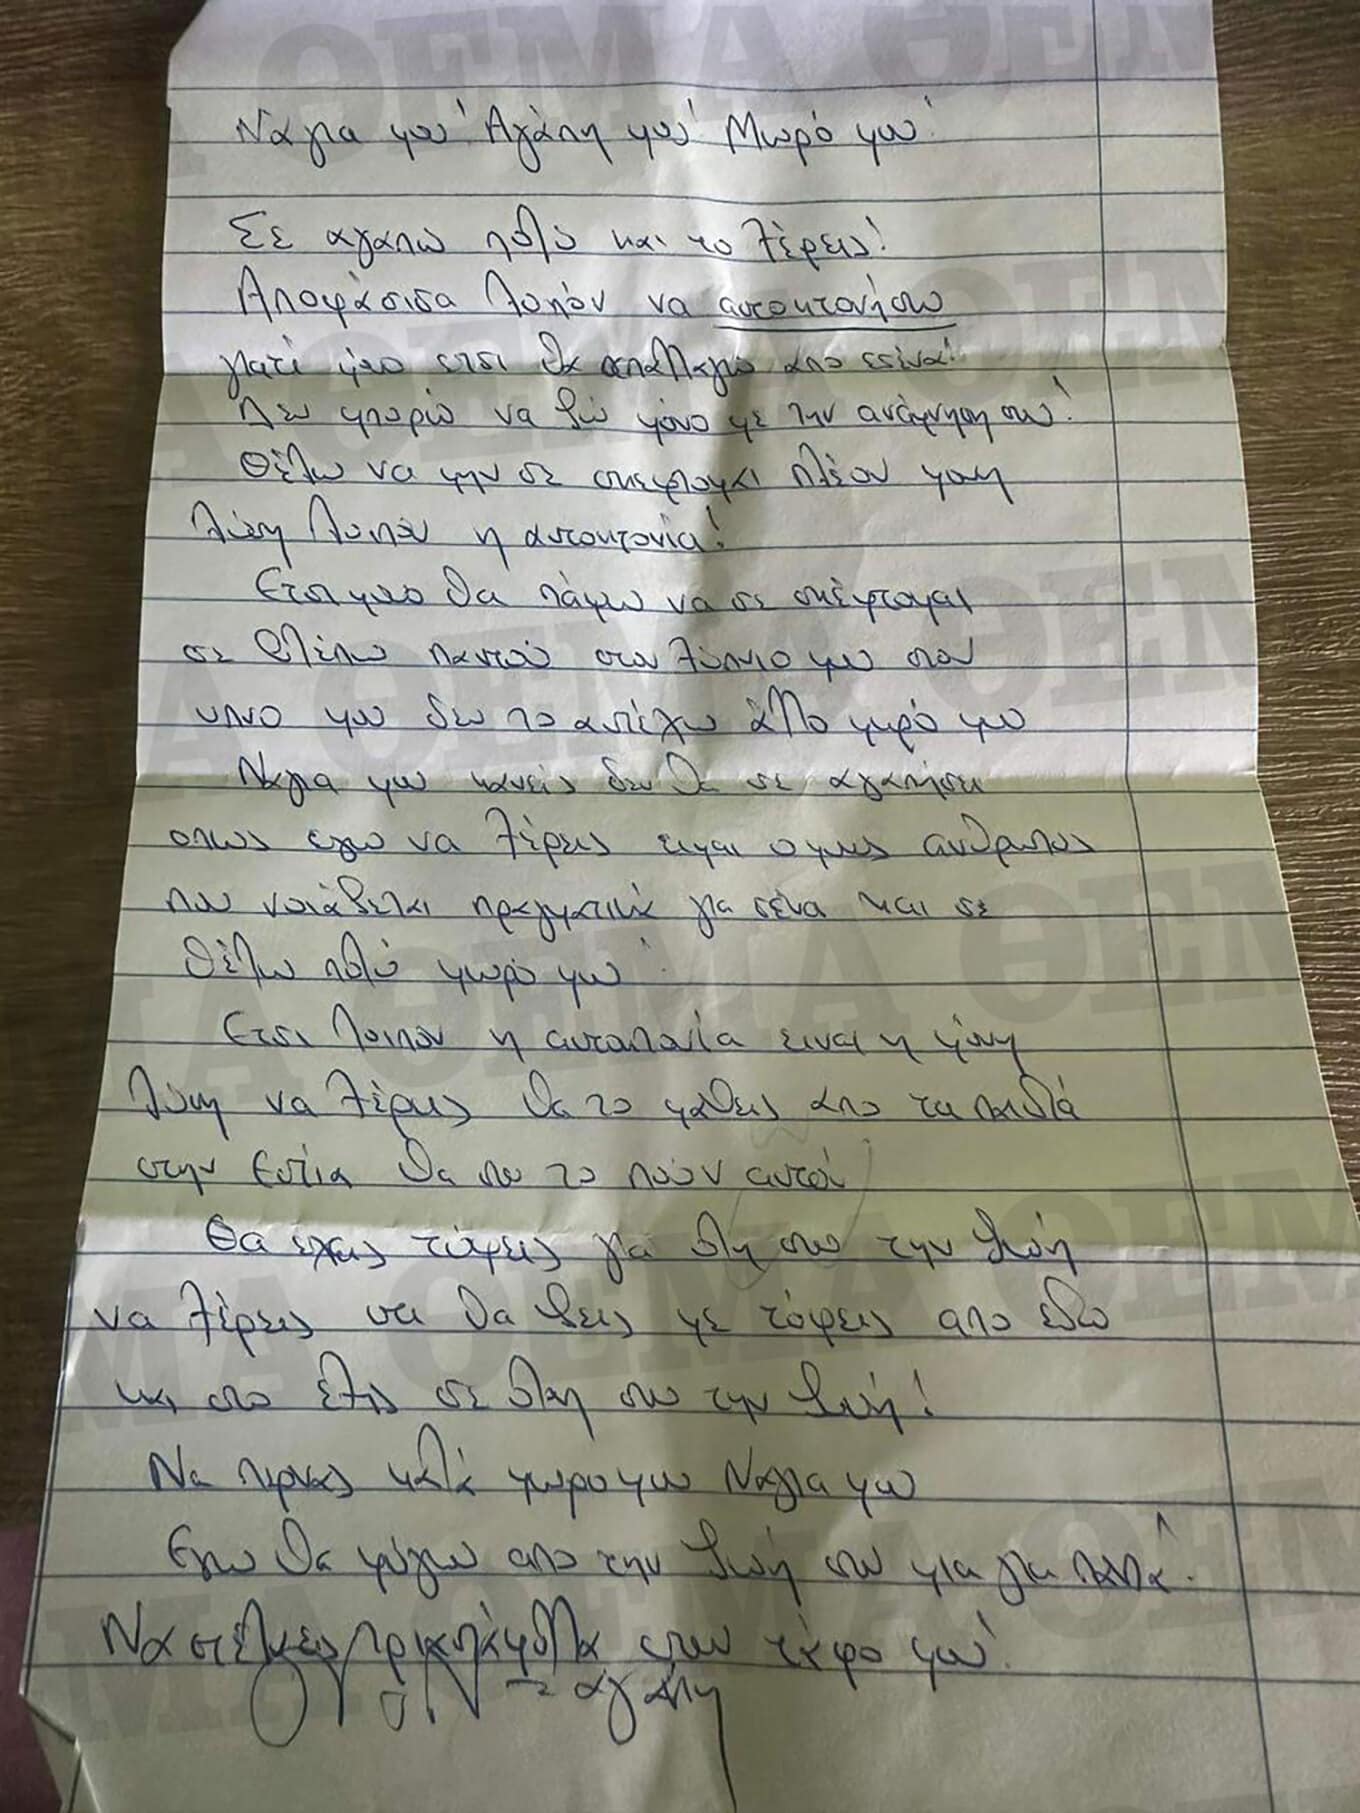 Νάγια μου! Αγάπη μου! Μωρό μου!
Σε αγαπώ πολύ και το ξέρεις!
Αποφάσισα λοιπόν να αυτοκτονήσω
γιατί μόνο ετσι θα απαλλαγώ απο εσένα!
Δεν μπορώ να ζώ μόνο με την ανάμνηση σου!
Θέλω να μην σε σκεφτομαι πλέον μονη
λύση λοιπόν η αυτοκτονία!
Ετσι μονο θα πάψω να σε σκέφτομαι
σε βλέπω παντού στον ξύπνιο μου στον
υπνο μου δεν το αντέχω άλλο μωρό μου
Ναγια μου κανείς δεν θα σε αγαπήσει
οπως εγω να ξέρεις ειμαι ο μονος ανθρωπος
που νοιάζεται πραγματικά για σένα και σε
θέλω πολύ μωρό μου!
Ετσι λοιπον η αυτοκτονία ειναι η μόνη
λύση να ξέρεις θα το μαθεις απο τα παιδιά
στην Εστία θα σου το πούν αυτοί
Θα εχεις τύψεις για όλη σου την ζωή
να ξέρεις οτι θα ζεις με τύψεις απο εδω
και στο εξής σε όλη σου την ζωή!
Να περνας καλά μωρο μου Ναγια μου
Εγω θα φύγω απο την ζωή σου μια για πάντα!
Να στέλνεις τριαντάφυλλα στον τάφο μου!
αγάπη
ΘΕΜΑ